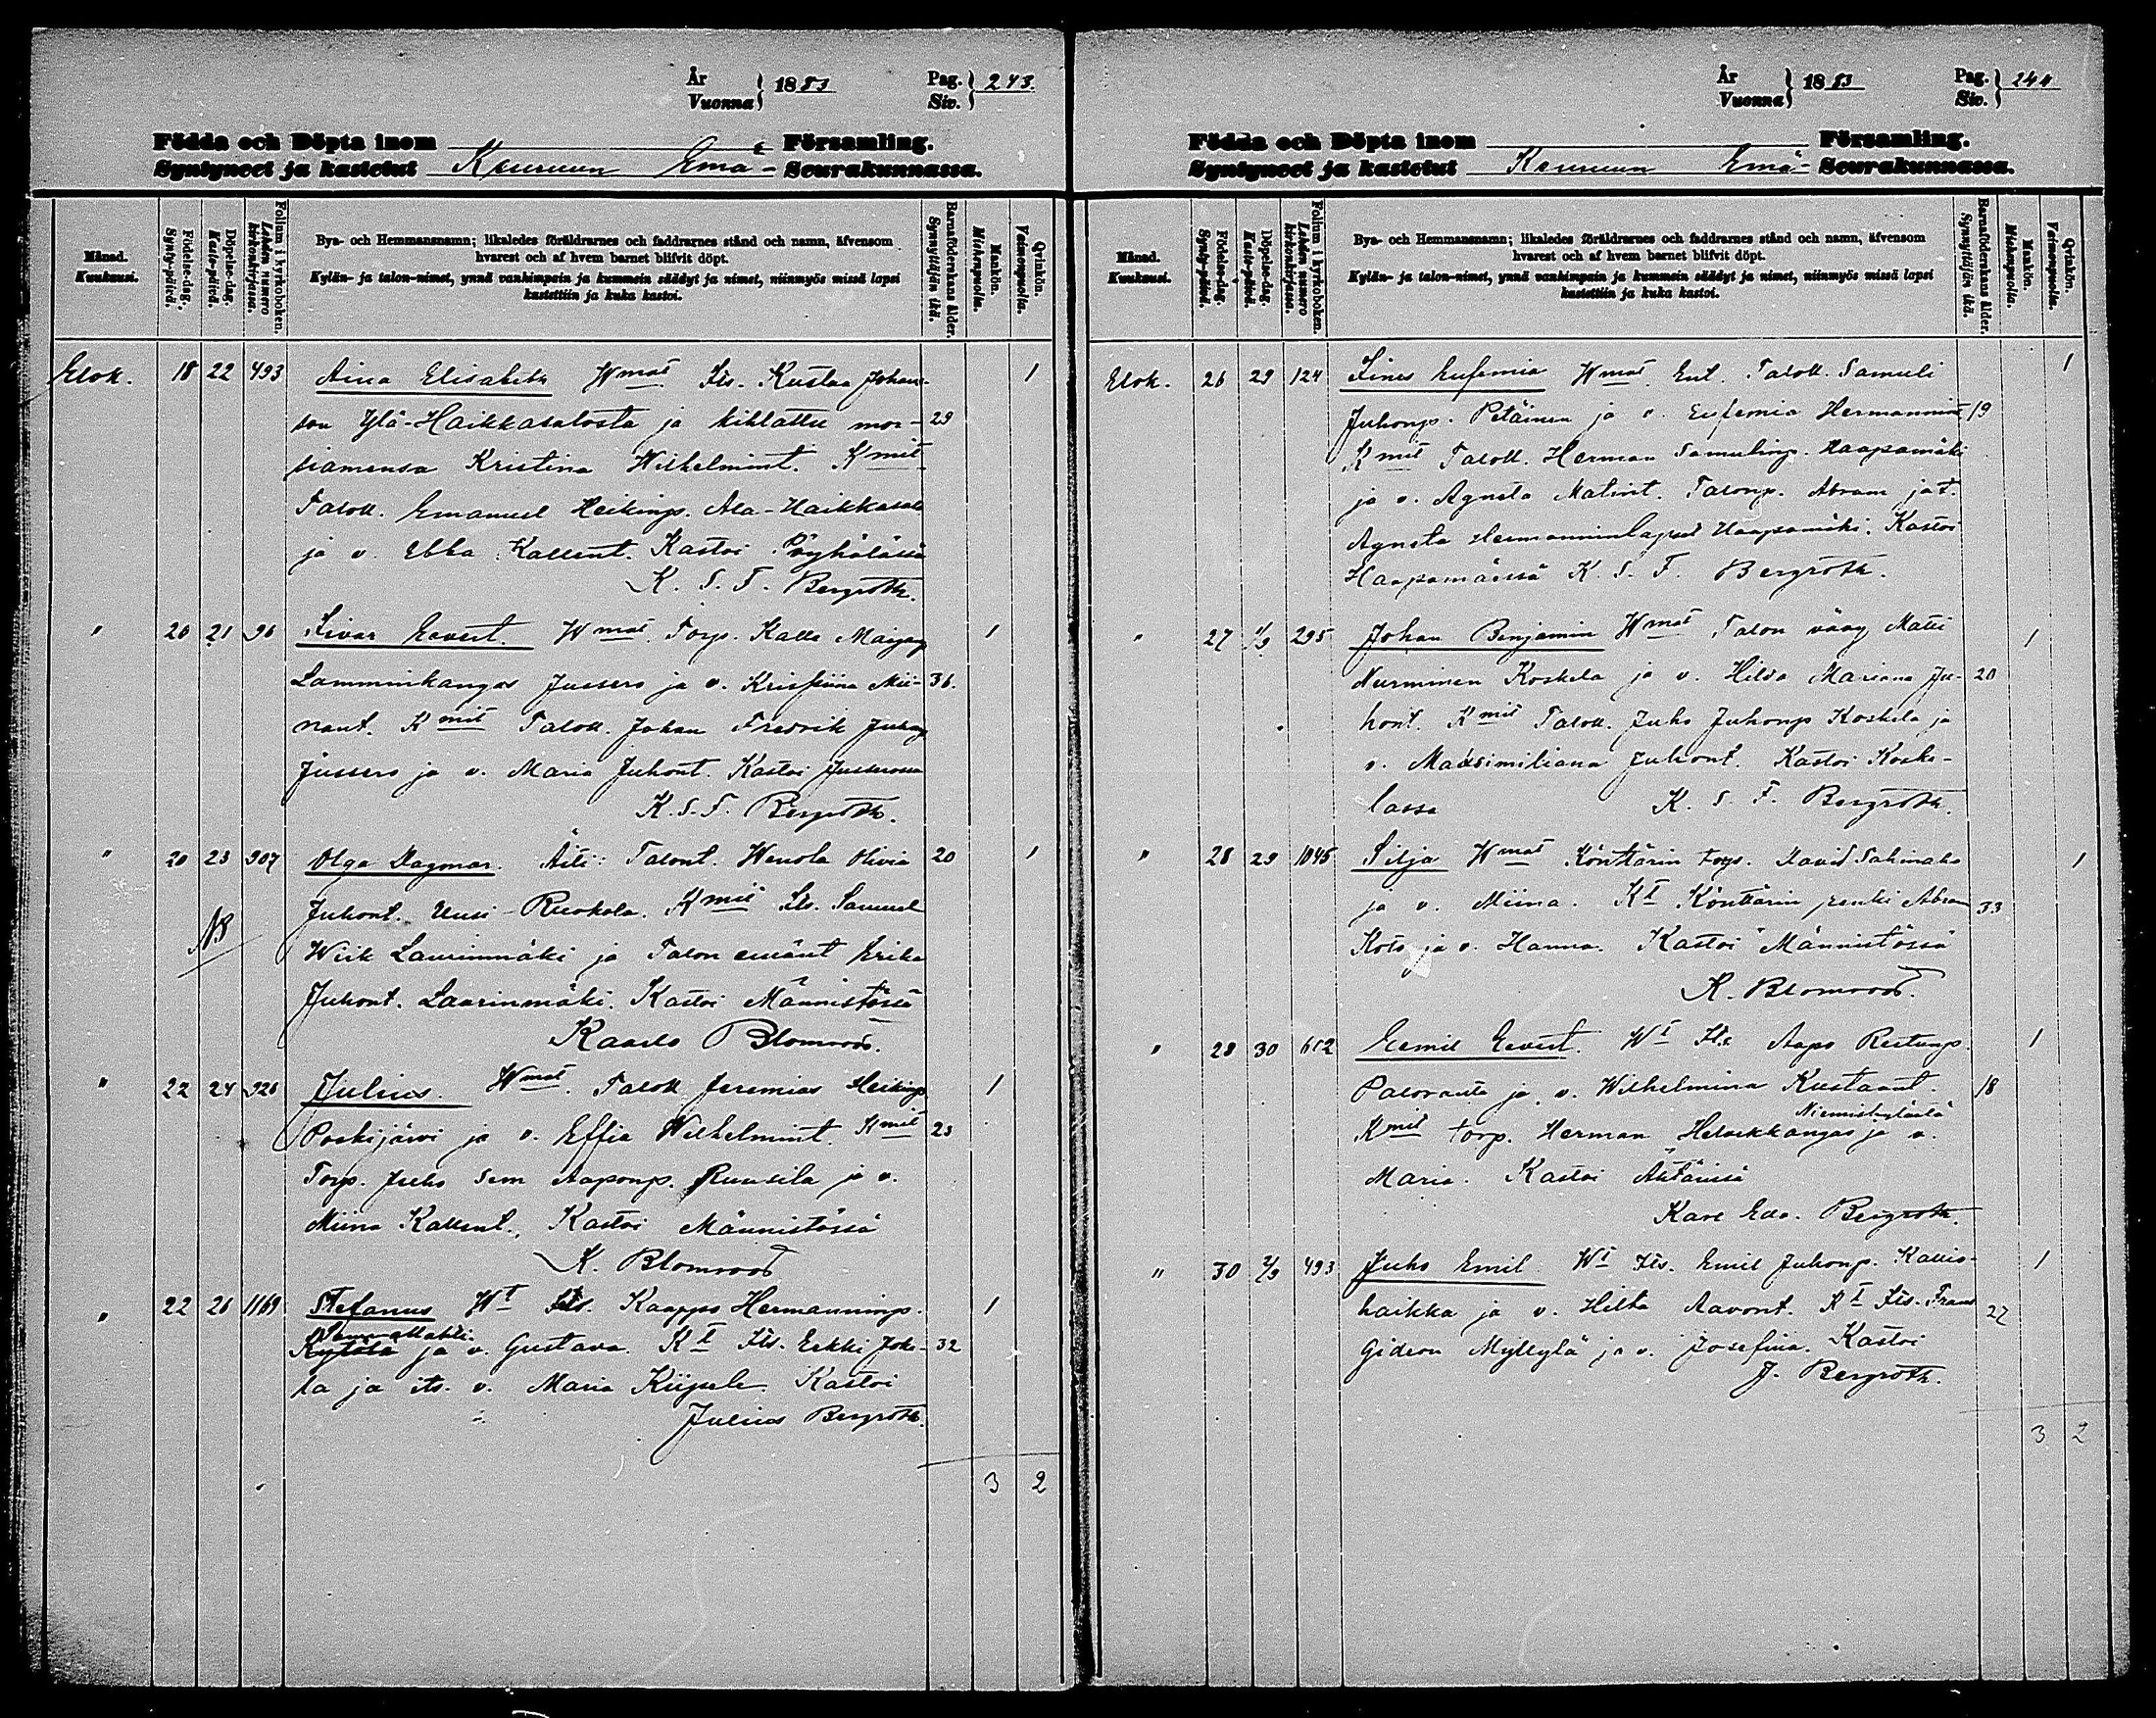 År
Vuonna } 1883 Pag. Siv. } 243.
Födda och Döpta inom Församling.
Syntyneet ja kastetut Keuruun Emä- Seurakunnassa.
Månad. Kuukausi.
Födelse-dag. Synty-päivä.
Döpelse-dag. Kaste-päivä.
Folium i kyrkoboken. Lehden numero kirkonkirjassa.
Bya- och Hemmansnamn; likaledes föräldrarnes och faddrarnes stånd och namn, äfvensom
hvarest och af hvem barnet blifvit döpt.
Kylän- ja talon-nimet, ynnä vanhimpain ja kummein säädyt ja nimet, niinmyös missä lapsi
kastettiin ja kuka kastoi.
Barnaföderskans ålder. Synnyttäjän ikä.
Mankön. Miehenpuolia.
Qvinkön. Vaimonpuolia.
Elok. 18 22 493 Aina Elisabeth Wmat Its. Kustaa Johan- 1
son Ylä-Haikkasalosta ja kihlattu mor- 29
siamensa Kristina Wilhelmint. Kmit
Taloll. Emanuel Heikinp. Ala-Haikkasalo
ja v. Ebba Kallent. Kastoi Pöyhölässä
K. S. F. Bergroth.
" 20 21 96 Iivar Eevert. Wmat. Torp. Kalle 1
Lamminkangas Jussero ja v. Kristiina Mii- 36.
nant. Kmit Taloll. Johan Fredrik Juhonp
Jussero ja v. Maria Juhont. Kastoi Jusserossa
K. S. F. Bergroth.
" 20 23 907 Olga Dagmar. Äiti: Talont. Wenola Olivia 20 1
Juhont. Uusi-Ruokola. Kmit Its. Samuel
NB
Wiik Laurinmäki ja Talon emänt Erika
Juhont. Laurinmäki. Kastoi Männistössä
Kaarlo Blomroos.
" 22 24 926 Julius. Wmat. Taloll Jeremias Heikinp 1
Poskijärvi ja v. Effia Wilhelmint. Kmit 23
Torp. Juho Sem Aaponp. Ruusila ja v.
Miina Kallent., Kastoi Männistössä
K. Blomroos
" 22 26 1169 Stefanus Wt Its. Kaappo Hermanninp. 1
Kytölä ja v. Gustava. Kt Its. Erkki Joke- 32
la ja its. v. Maria Kiipula. Kastoi
Julius Bergroth.
3 2
År
Vuonna } 1883 Pag. Siv. } 244
Födda och Döpta inom Församling.
Syntyneet ja kastetut Keuruun Emä- Seurakunnassa.
Månad. Kuukausi.
Födelse-dag. Synty-päivä.
Döpelse-dag. Kaste-päivä.
Folium i kyrkoboken. Lehden numero kirkonkirjassa.
Bya- och Hemmansnamn; likaledes föräldrarnes och faddrarnes stånd och namn, äfvensom
hvarest och af hvem barnet blifvit döpt.
Kylän- ja talon-nimet, ynnä vanhimpain ja kummein säädyt ja nimet, niinmyös missä lapsi
kastettiin ja kuka kastoi.
Barnaföderskans ålder. Synnyttäjän ikä.
Mankön. Miehenpuolia.
Qvinkön. Vaimonpuolia.
Elok. 26 29 124 Iines Eufemia Wmat Ent. Taloll. Samuli 1
Juhonp. Petäinen ja v. Eufemia Hermannint 19
Kmit Taloll. Herman Samulinp. Haapamäki
ja v. Agneta Matint. Talonp. Abram ja t.
Agneta Hermanninlapset Haapamäki. Kastoi
Haapamäessä K. S. F. Bergroth.
" 27 1/9 295 Johan Benjamin Wmat Talon vävy Matti 1
Nurminen Koskela ja v. Hilda Mariana Ju- 20
hont. Kmit Taloll. Juho Juhonp Koskela ja
v. Maksimiliana Juhont. Kastoi Koske-
lassa K. S. F. Bergroth.
" 28 29 1045 Silja Wmat Könttärin torp. David Sahinaho 1
ja v. Miina. Kt Könttärin renki Abram 33
Koto ja v. Hanna. Kastoi Männistössä
K. Blomroos.
" 28 30 612 Eemil Eevert. Wt Its. Aapo Reetunp. 1
Paloranta ja v. Wilhelmina Kustaant. 18
Kmit torp. Herman ja v.
Maria. Kastoi Ähtärissä
Karl Edv. Bergroth.
" 30 2/9 493 Juho Emil Wt Its. Emil Juhonp. Kallio- 1
haikka ja v. Hilta Aavont. Kt Its. Frans 27
Gideon Myllylä ja v. Josefina. Kastoi
J. Bergroth.
3 2